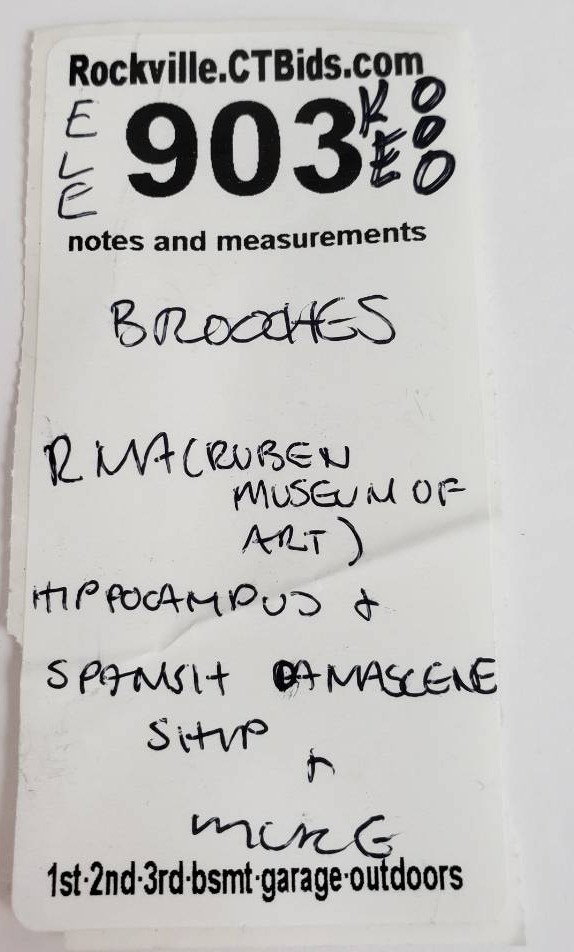 Rockville.CTBids.com
E
L
E
903
K O
E O
O
notes and measurements
BROOCHES
RMA (RUBEN
MUSEUM OF
ART)
HIPPOCAMPUS &
SPANISH DAMASCENE
SHIP
+
MORE
1st·2nd·3rd·bsmt·garage·outdoors